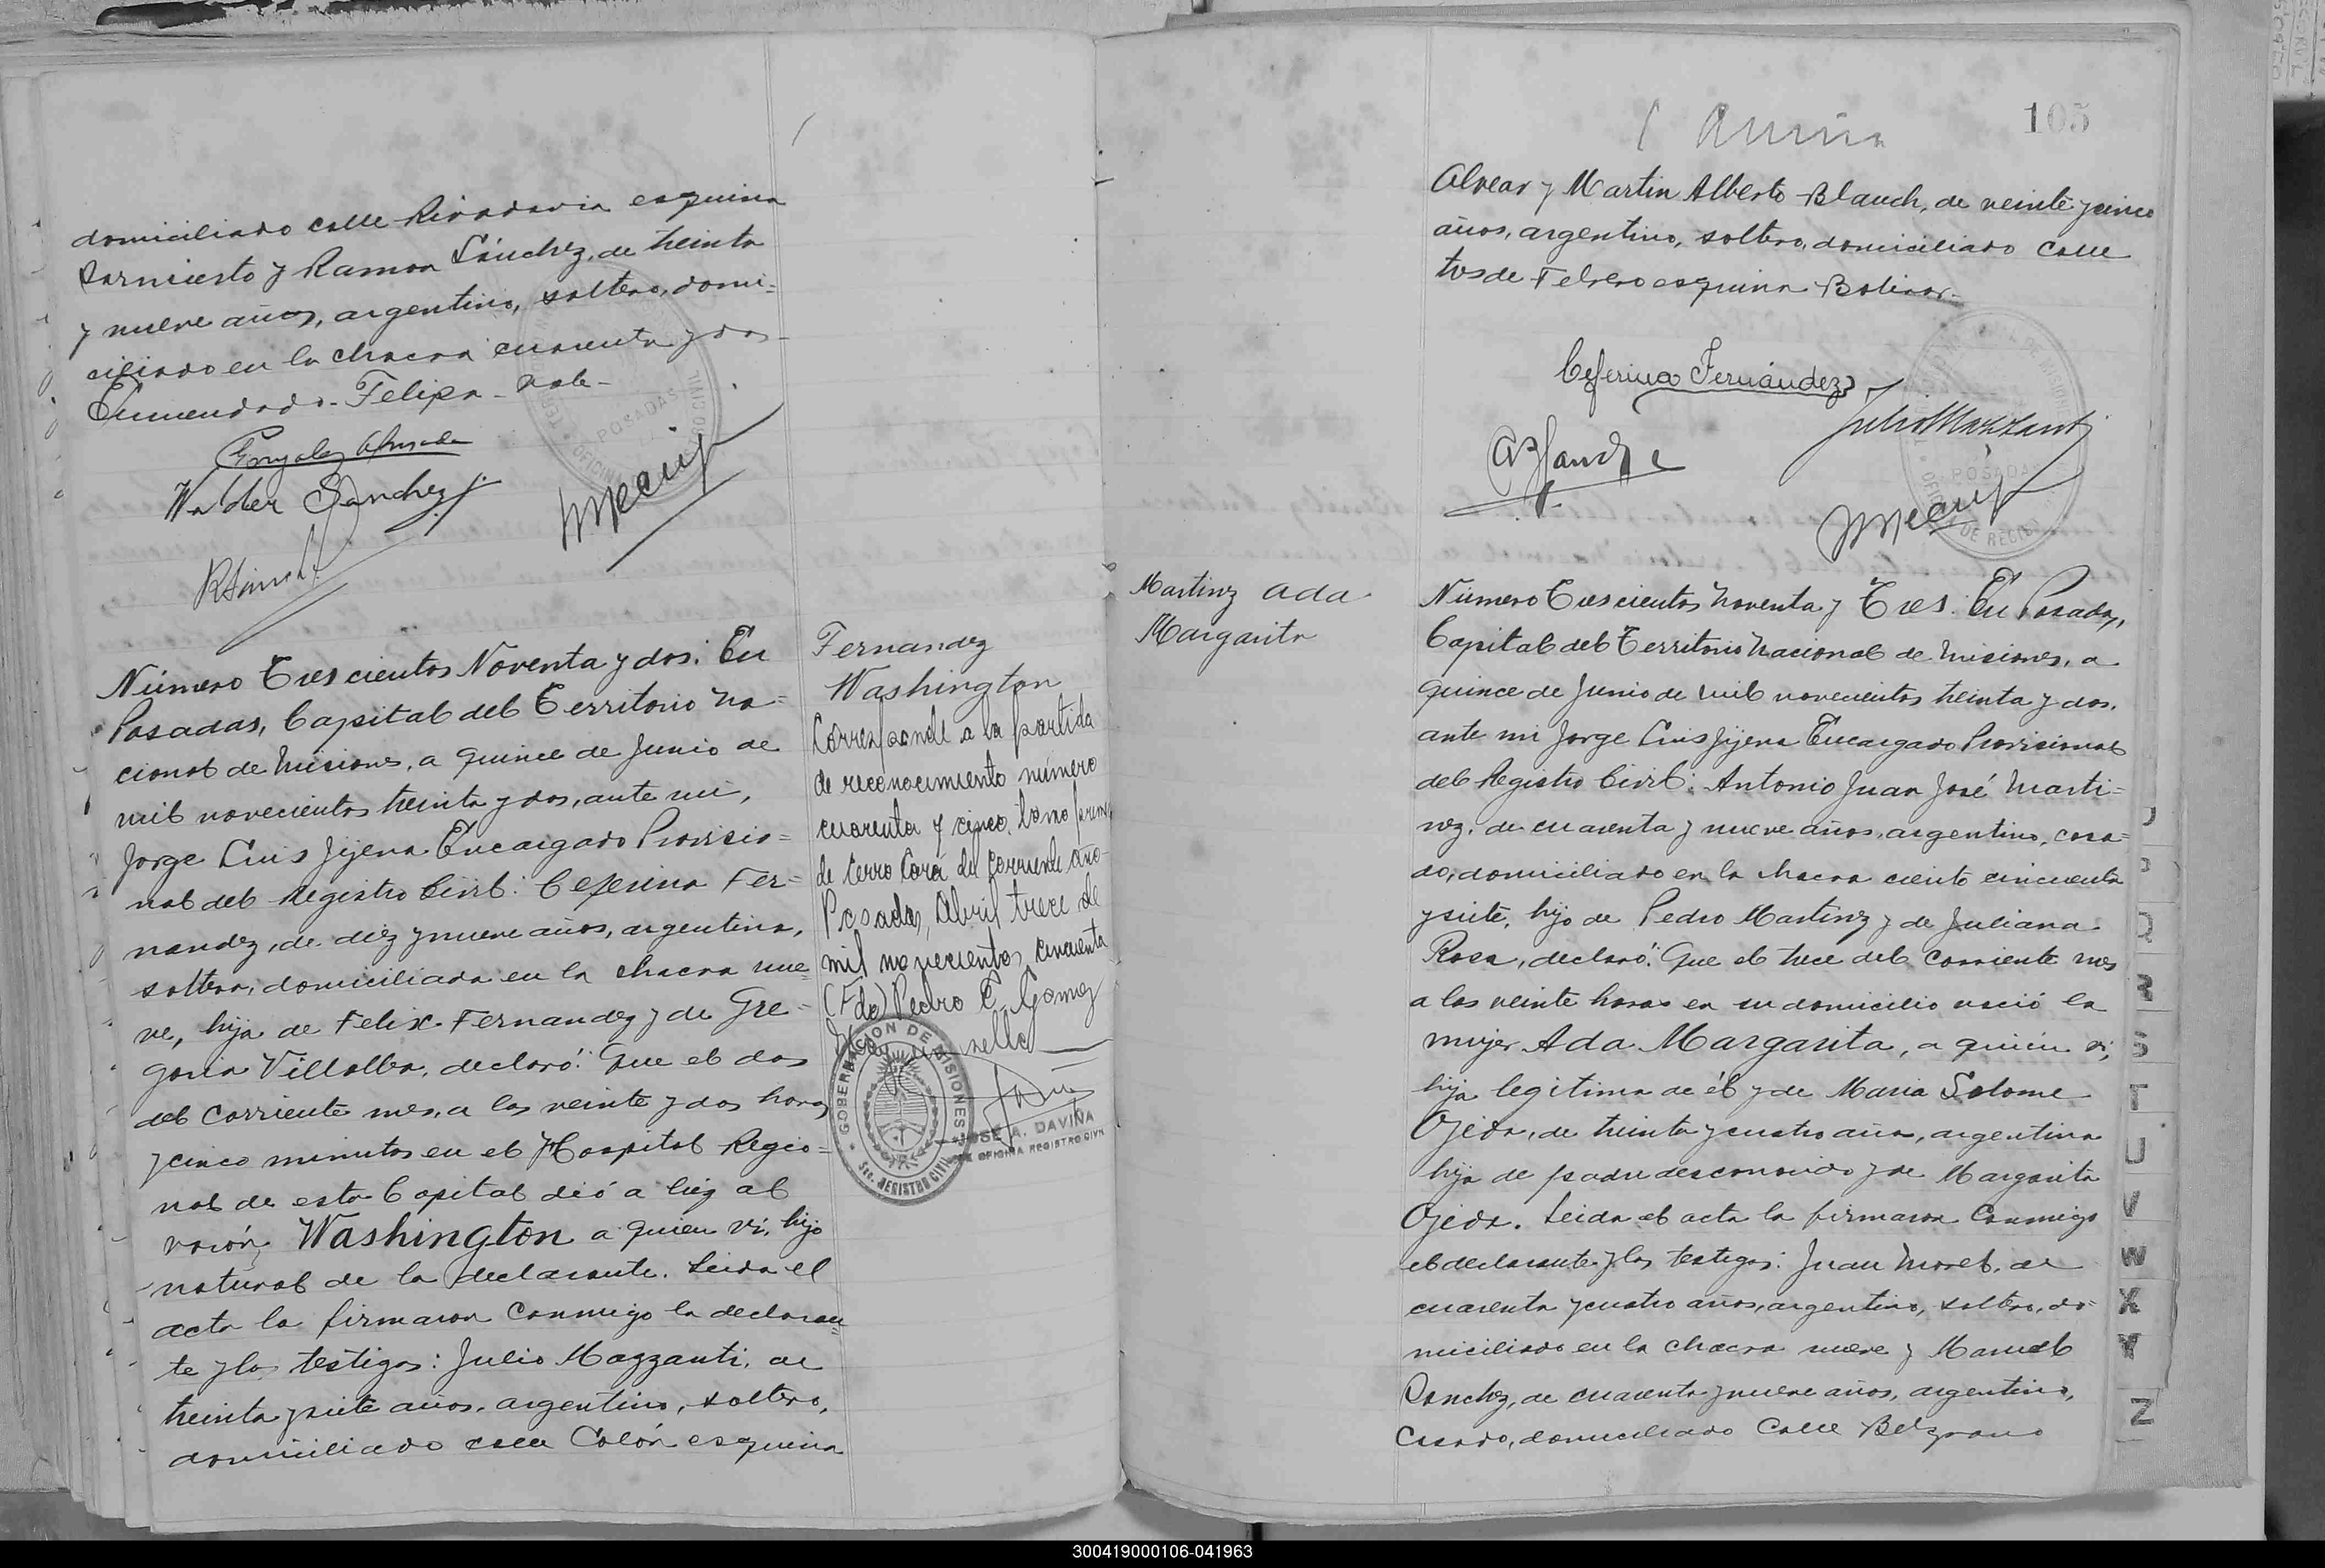 domiciliado calle Rivadavia esquina
Sarmiento y Ramon Sánchez, de treinta
y nueve años, argentino, soltero, domi=
ciliado en la chacra cuarenta y dos-
Enmendado-Felipa-vale-
Walter Sanchez
Número Trescientos Noventa y dos: En
Posadas, Capital del Territorio Na=
cional de Misiones, a quince de Junio de
mil novecientos treinta y dos, ante mi,
Jorge Luis Jijena Encargado Provisio=
nal del Registro Civil: Ceferina Fer=
nandez, de diez y nueve años, argentina,
soltera, domiciliada en la chacra nue=
ve, hija de Felix Fernandez y de Gre=
goria Villalba, declaró: Que el dos
del corriente mes, a las veinte y dos horas
y cinco minutos en el Hospital Regio=
nal de esta Capital dió a luz al
varón, Washington a quien vi, hijo
natural de la declarante. Leida el
acta la firmaron conmigo la declaran=
te y los testigos: Julio Mazzanti, de
treinta y siete años, argentino, soltero,
domiciliado calle Colón esquina
Fernandez
Washington
Corresponde a la partida
de reconocimiento número
cuarenta y cinco, tomo prim.
de Cerro Corá del corriente año-
Posadas, Abril trece de
mil novecientos cincuenta
(Fdo) Pedro E. Gomez
GOBERNACION DE MISIONES
Sec. REGISTRO CIVIL
JOSE A. DAVIÑA
DE OFICINA REGISTRO CIVIL
105
Alvear y Martin Alberto Blanch, de veinte y cinco
años, argentino, soltero, domiciliado calle
tres de Febrero esquina Bolivar-
Ceferina Fernández
Julio Mazzanti
POSADAS
Martinez Ada
Margarita
Número Trescientos Noventa y Tres: En Posadas,
Capital del Territorio Nacional de Misiones, a
quince de Junio de mil novecientos treinta y dos,
ante mi Jorge Luis Jijena Encargado Provisional
del Registro Civil: Antonio Juan José Marti=
nez, de cuarenta y nueve años, argentino, casa=
do, domiciliado en la chacra ciento cincuenta
y siete, hijo de Pedro Martinez y de Juliana
Rosa, declaró: Que el trece del corriente mes
a las veinte horas en su domicilio nació la
mujer Ada Margarita, a quien vi,
hija legitima de él y de Maria Salome
Ojeda, de treinta y cuatro años, argentina
hija de padre desconocido y de Margarita
Ojeda. Leida el acta la firmaron conmigo
el declarante y los testigos: Juan Morel, de
cuarenta y cuatro años, argentino, soltero, do=
miciliado en la chacra nueve y Manuel
Sanchez, de cuarenta y nueve años, argentino,
casado, domiciliado calle Belgrano
R
S
T
U
V
W
X
Y
Z
300419000106-041963